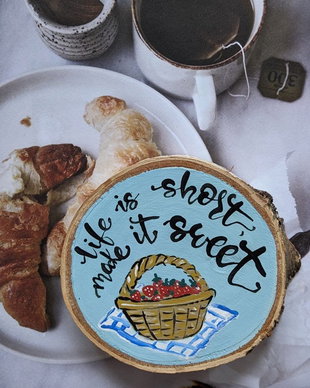 life is short,
make it sweet